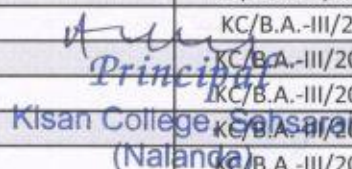 KC/B.A.-III/2
KC/B.A.-III/20
Principal
KC/B.A.-III/20
Kisan College, Sohsarai
KC/B.A.-III/20
(Nalanda)
KC/B.A.-III/20